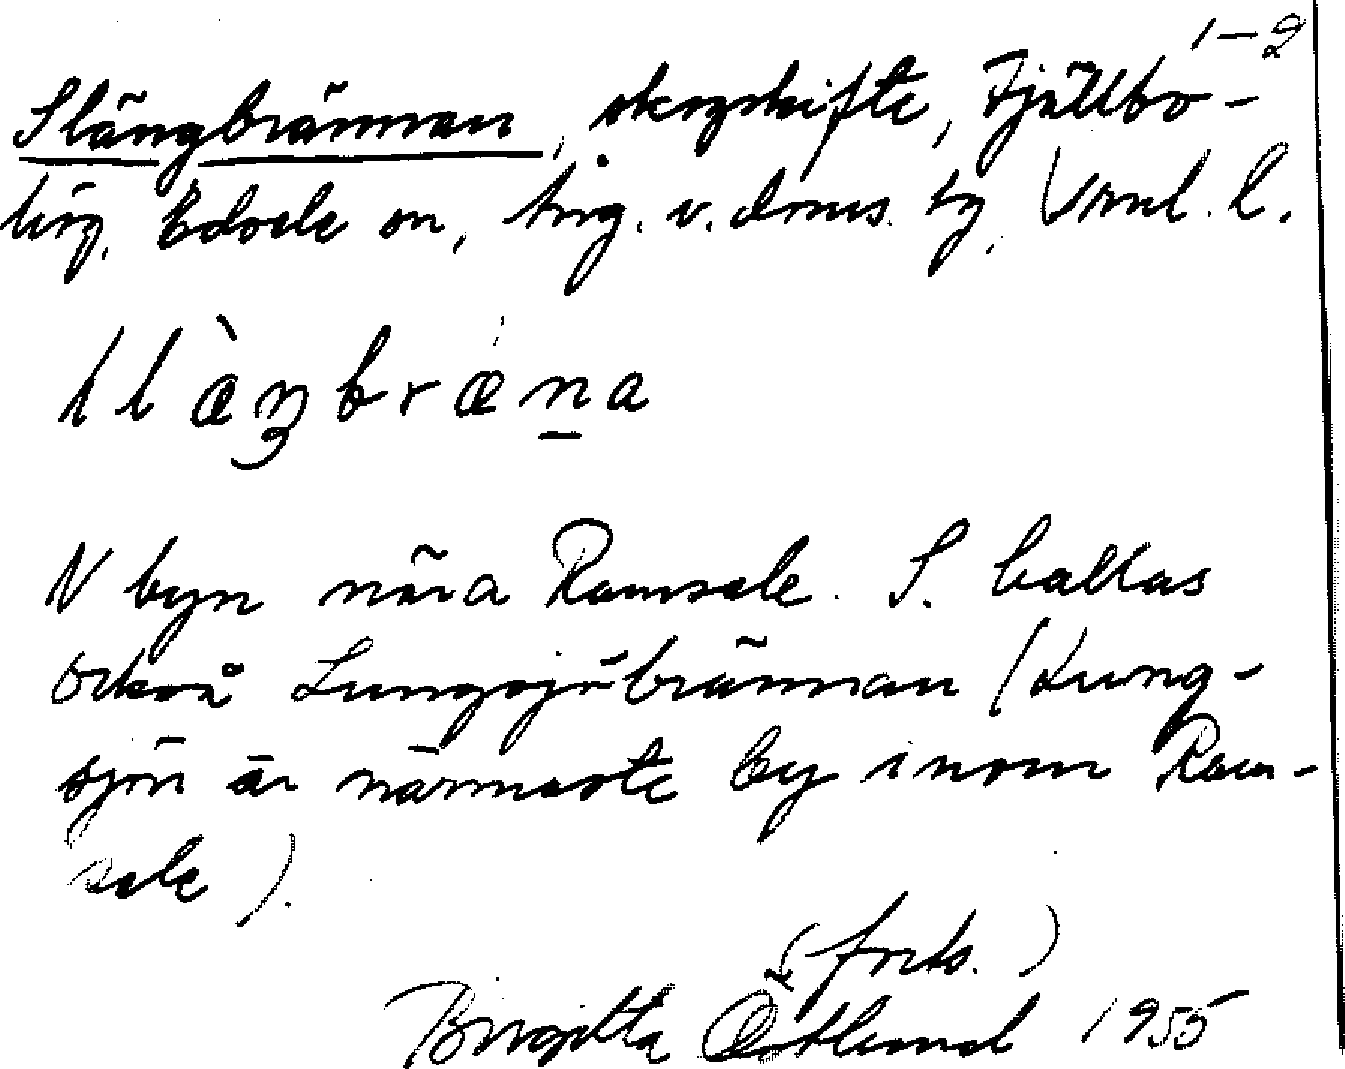 1-2
Slängbrännan, skogskifte, Fjällbo-
hög, Edsele sn, Ång. v. doms. tg, Vnl. l.
N byn nära Ramsele. S. kallas
också Lungsjöbrännan (Lung-
sjön är närmaste by inom Ram-
sele).
(forts.)
Birgitta Östlund 1955